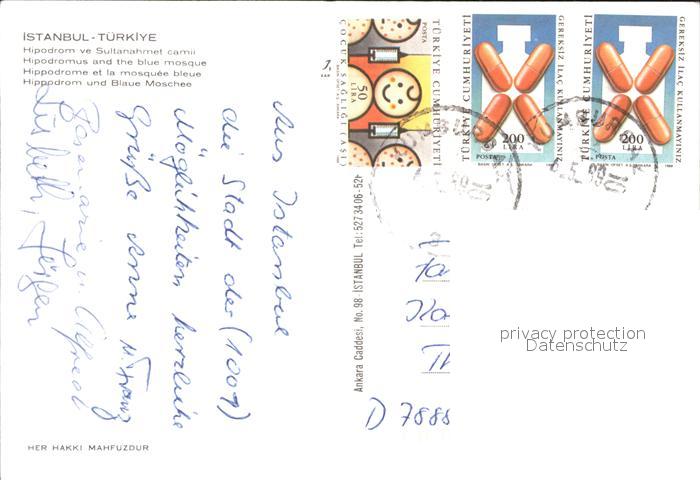 İSTANBUL-TÜRKİYE
Hipodrom ve Sultanahmet camii
Hipodromus and the blue mosque
Hippodrome et la mosquée bleue
Hippodrom und Blaue Moschee
Aus Istanbul
die Stadt der (1001)
Möglichkeiten herzliche
Grüße Anne u. Franz
Rosemarie u. Alfred
Lisbeth, Jürgen
HER HAKKI MAHFUZDUR
Ankara Caddesi, No. 98 - İSTANBUL Tel: 5273406-52
ÇOCUK SAĞLIĞI (AŞI)
50
LİRA
POSTA
TÜRKİYE CUMHURİYETİ
TÜRKİYE CUMHURİYETİ
200
LİRA
POSTA
GEREKSİZ İLAÇ KULLANMAYINIZ
TÜRKİYE CUMHURİYETİ
200
LİRA
POSTA
GEREKSİZ İLAÇ KULLANMAYINIZ
Fa
Ko
Th
D 7888
privacy protection
Datenschutz